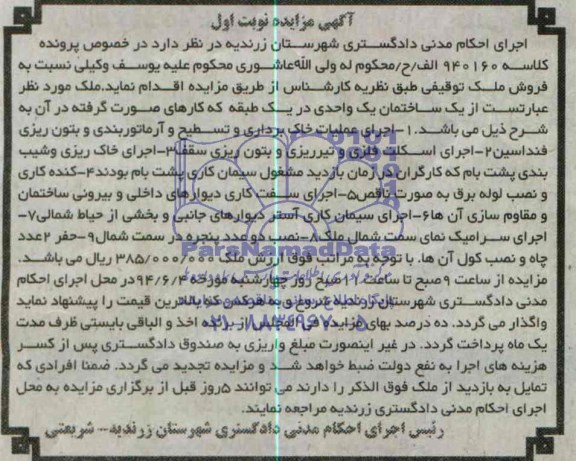 آگهی مزایده نوبت اول
اجرای احکام مدنی دادگستری شهرستان زرندیه در نظر دارد در خصوص پرونده
کلاسه ۹۴۰۱۶۰ الف/ح/محکوم له ولی الله عاشوری محکوم علیه یوسف وکیلی نسبت به
فروش ملک توقیفی طبق نظریه کارشناس از طریق مزایده اقدام نماید.ملک مورد نظر
عبارتست از یک ساختمان یک واحدی در یک طبقه که کارهای صورت گرفته در آن به
شرح ذیل می باشد.۱- اجرای عملیات خاک برداری و تسطیح و آرماتوربندی و بتون ریزی
فنداسین۲-اجرای اسکلت فلزی و تیرریزی و بتون ریزی سقف۳-اجرای خاک ریزی وشیب
بندی پشت بام که کارگران در زمان بازدید مشغول سیمان کاری پشت بام بودند۴-کنده کاری
و نصب لوله برق به صورت ناقص۵-اجرای سفت کاری دیوارهای داخلی و بیرونی ساختمان
و مقاوم سازی آن ها۶-اجرای سیمان کاری آستر دیوارهای جانبی و بخشی از حیاط شمالی۷-
اجرای سرامیک نمای سمت شمال ملک۸-نصب دو عدد پنجره در سمت شمال۹-حفر ۲عدد
چاه و نصب کول آن ها. با توجه به مراتب فوق ارزش ملک ۳۸۵/۰۰۰/۰۰۰ ریال می باشد.
مزایده از ساعت ۹صبح تا ساعت ۱۱صبح روز چهارشنبه مورخه ۹۴/۶/۴در محل اجرای احکام
مدنی دادگستری شهرستان زرندیه شروع و به هرکس که بالاترین قیمت را پیشنهاد نماید
واگذار می گردد. ده درصد بهای مزایده فی المجلس از برنده اخذ و الباقی بایستی ظرف مدت
یک ماه پرداخت گردد. در غیر اینصورت مبلغ واریزی به صندوق دادگستری پس از کسر
هزینه های اجرا به نفع دولت ضبط خواهد شد و مزایده تجدید می گردد. ضمنا افرادی که
تمایل به بازدید از ملک فوق الذکر را دارند می توانند ۵روز قبل از برگزاری مزایده به محل
اجرای احکام مدنی دادگستری زرندیه مراجعه نمایند.
رئیس اجرای احکام مدنی دادگستری شهرستان زرندیه- شریعتی
ParsNamadData